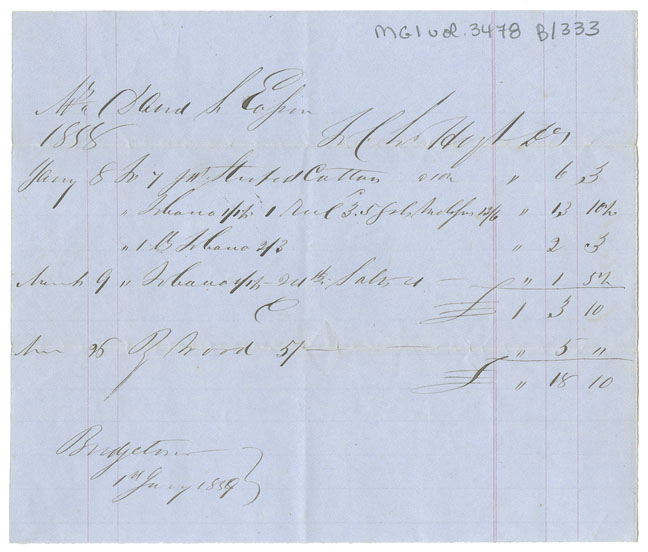 MG1 vol. 3478 B/333
Mr David
1858 To C Hoyt Dr
Jany 8 To 7 yds Striped Cotton " 6 3
" Tobacco 1/1½ 1 5 Gals Molasses 12/6 " 13 10½
" 1 lb Tobacco 2/3 " 2 3
March 9 " Tobacco 1/1½ Salts " 1 5½
£ 1 3 10
26 By Wood 5/- " 5 "
£ " 18 10
Bridgetown
1st Jany 1859